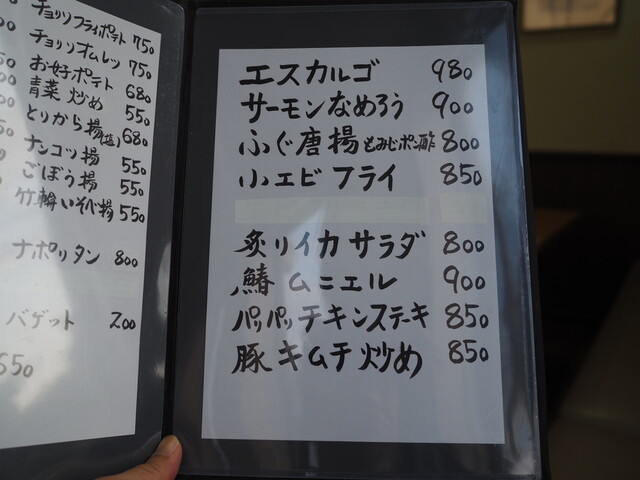 チョリソフライポテト 750
チョリソオムレツ 750
お好ポテト 680
青菜炒め 550
とりから揚(塩) 680
ナンコツ揚 550
ごぼう揚 550
竹輪いそべ揚 550
ナポリタン 800
バゲット 200
650
エスカルゴ 980
サーモンなめろう 900
ふぐ唐揚もみじポン酢 800
小エビフライ 850
炙りイカサラダ 800
鰆ムニエル 900
パリパリチキンステーキ 850
豚キムチ炒め 850